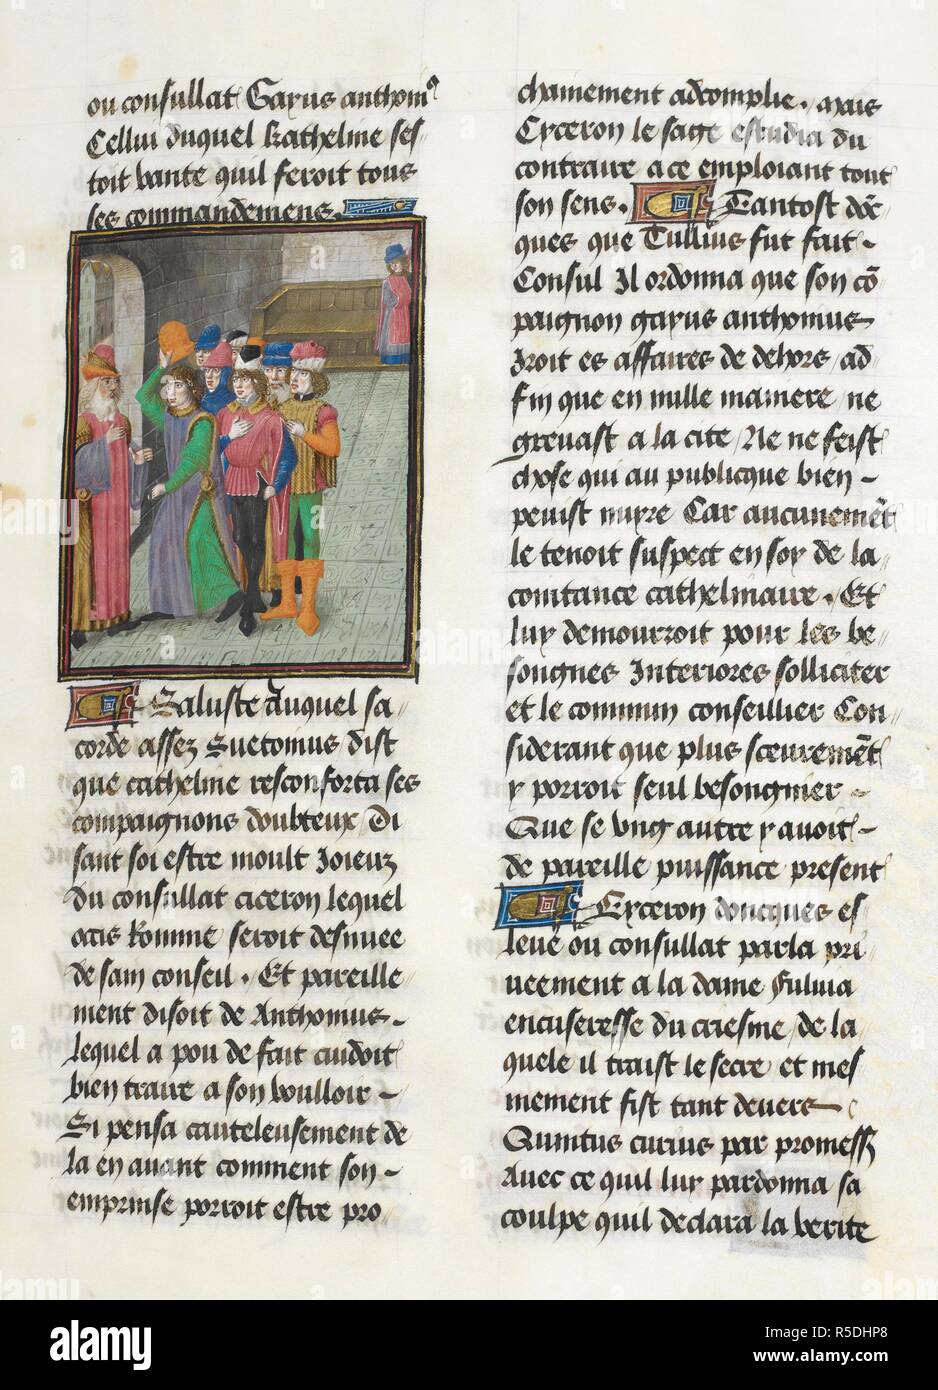 ou consullat Gayus anthom9
Cellui duquel Kathelme ses-
toit vante quil feroit tous
ses commandemens
Saluste auquel sa/
corde assez Suetomus dist
que cathelme resconforta ses
compaignons doubteux / Di
sant soi estre moult Joieux
du consullat ciceron lequel
Romme seroit desnuee
de sain conseil . Et pareille
ment disoit de Anthomus-
lequel a pou de fait cuidoit
bien traire a son voulloir -
Si pensa cauteleusement de
la en avant comment son -
emprinse porroit estre pro/
chainement adcomplie . mais
Cyceron le sage estudia du
contraire a ce emploiant tout
son sens . Tantost doc
ques que Tullius fut fait -
Consul Il ordonna que son co
paignon gayus anthomus
Iroit es affaires de dehors / ad/
fin que en nulle maniere / ne
grevast a la cite / Ne ne feist
chose qui au publicque bien -
peuist nuyre Car aucunemet
le tenoit suspect en soy de la
comtance cathelmaire . Et
luy demourroit pour les be/
songnes Interiores solliciter
et le commun conseillier Con/
siderant que plus sceuremet
y porroit seul besongnier -
Que se ung autre y avoit -
de pareille puissance present
Cyceron doncques es/
leue ou consullat parla pri/
ueement a la dame Fuluia
encuseresse du criesme / de la
quele il traist le secre et mes
mement fist tant devers
Quintus curius par promess
Avec ce quil luy pardonna sa
coulpe quil declara la verite
alamy
Image ID: R5DHP8
www.alamy.com